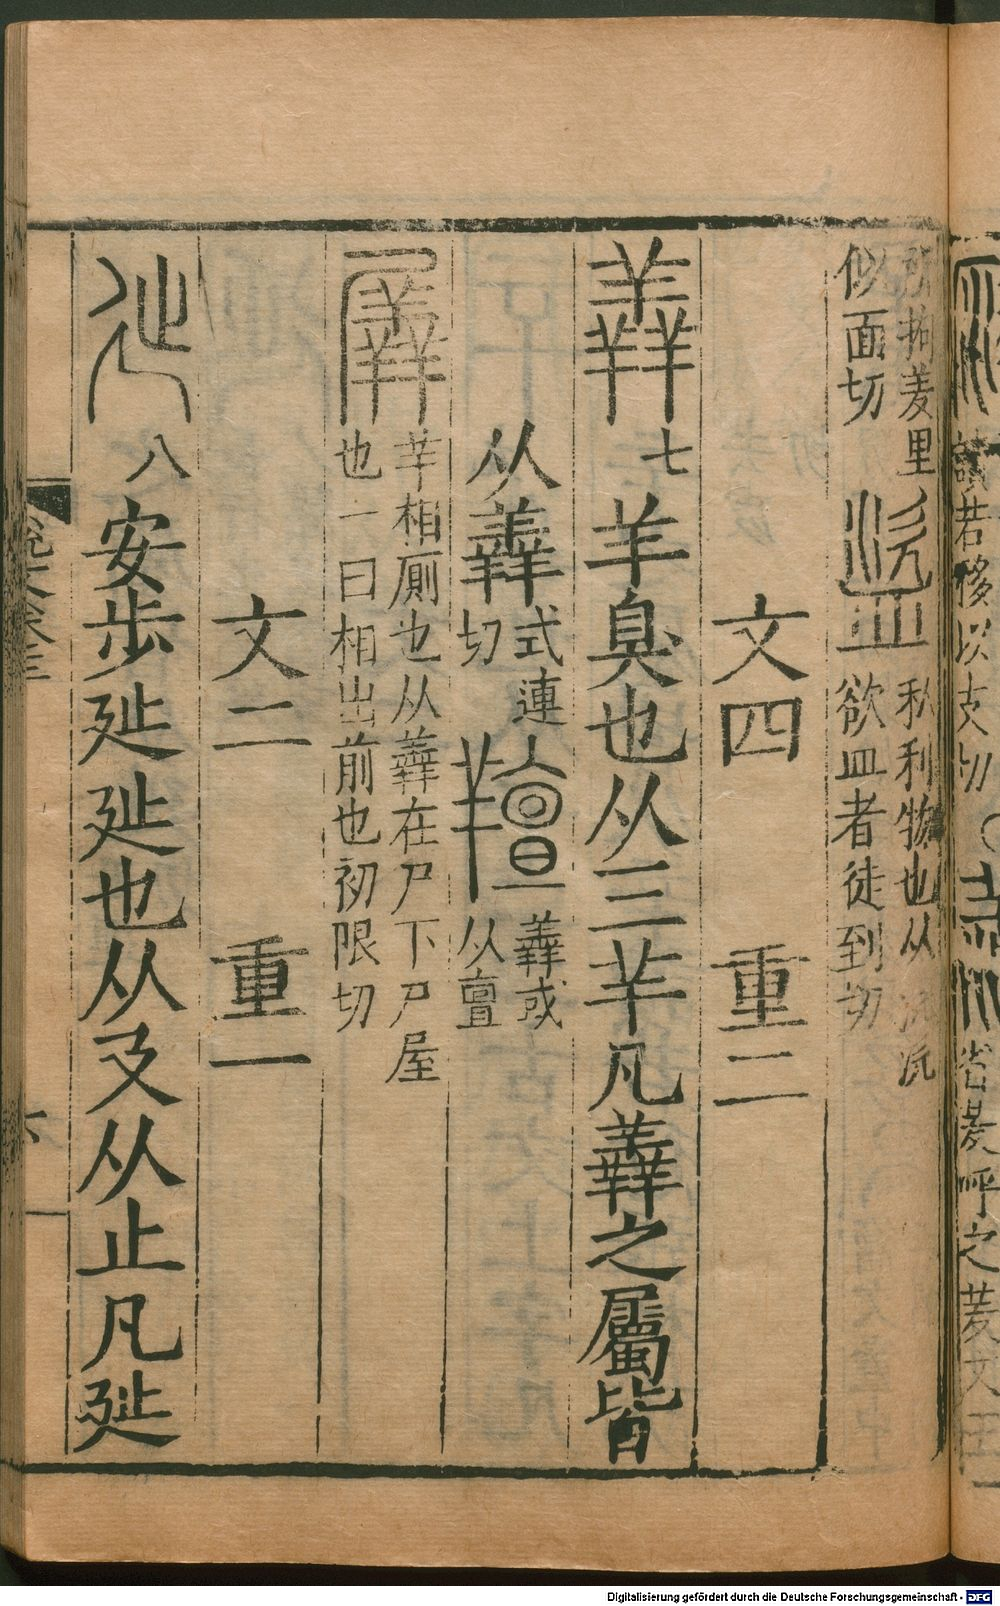 拘羑里
似面切
盜
厶利物也从㳄㳄
欲皿者徒到切
文四　重二
羴
七
羊臭也从三羊凡羴之屬皆
从羴
式連
切
羶
羴或
从亶
羼
羊相厠也从羴在尸下尸屋
也一曰相出前也初限切
文二　重一
㢟
八
安步㢟㢟也从廴从止凡㢟
讀若移以支切
Digitalisierung gefördert durch die Deutsche Forschungsgemeinschaft - DFG